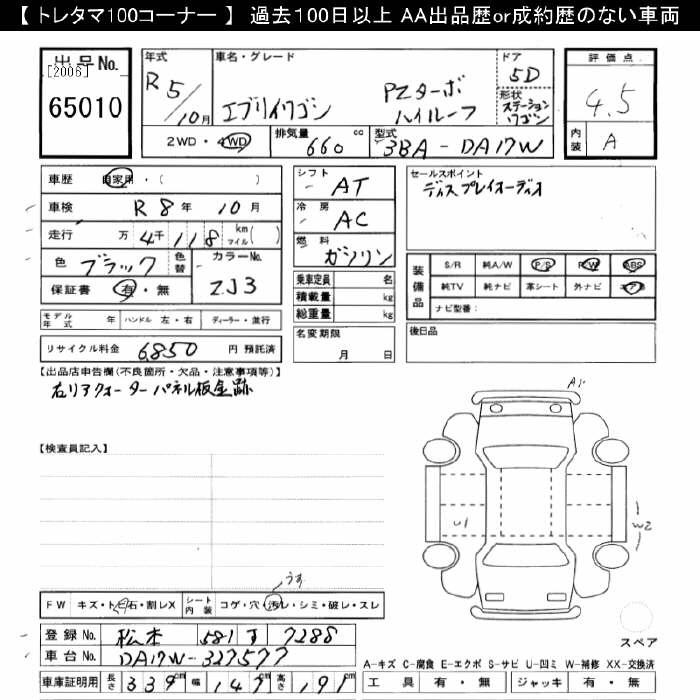 【 トレタマ100コーナー 】 過去100日以上 AA出品歴or成約歴のない車両
出品No. [2006] 65010
年式 R5/10月
車名・グレード エブリイワゴン PZターボ ハイルーフ
ドア 5D
形状 ステーションワゴン
評価点 4.5
内装 A
2WD・4WD
排気量 660 cc
型式 3BA-DA17W
車歴 自家用・( )
車検 R 8 年 10 月
走行 万 4千118 km マイル( )
色 ブラック 色替 カラーNo. ZJ3
保証書 有・無
モデル年式 年 ハンドル 左・右 ディーラー・並行
リサイクル料金 6,850 円 預託済
シフト AT
冷房 AC
燃料 ガソリン
乗車定員 名
積載量 kg
総重量 kg
名変期限 月 日
セールスポイント
ディスプレイオーディオ
装備品 S/R 純A/W P/S P/W ABS
純TV 純ナビ 革シート 外ナビ エアB
ナビ型番:
後日品
【出品店申告欄(不良箇所・欠品・注意事項等)】
右リアクォーターパネル板金跡
【検査員記入】
A1
U1
W2
スペア
うす
FW キズ・トビ石・割レX シート内装 コゲ・穴・汚レ・シミ・破レ・スレ
登録No. 松本 581 す 7288
車台No. DA17W-327577
車庫証明用 長さ 339 cm 幅 147 cm 高さ 191 cm
A-キズ C-腐食 E-エクボ S-サビ U-凹ミ W-補修 XX-交換済
工具 有・無 ジャッキ 有・無